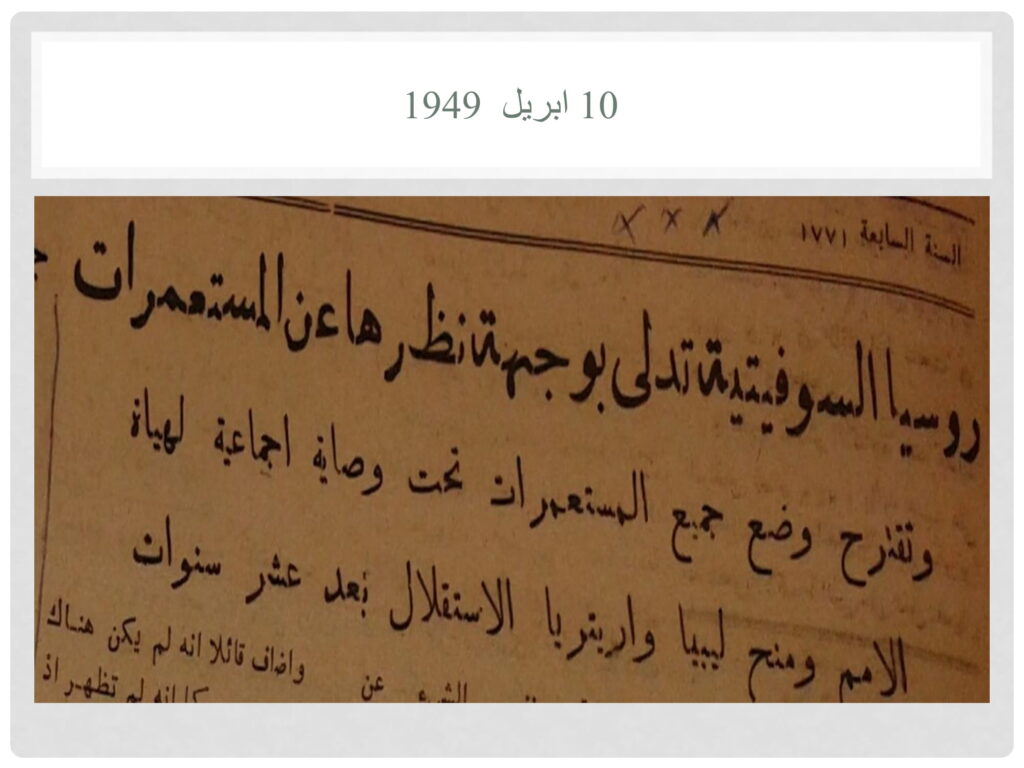 10 ابريل 1949
السنة السابعة ١٧٧١
روسيا السوفيتية تدلى بوجهة نظرها عن المستعمرات
وتقترح وضع جميع المستعمرات تحت وصاية اجماعية لهياة
الامم ومنح ليبيا واريتريا الاستقلال بعد عشر سنوات
واضاف قائلا انه لم يكن هناك
الشىء عن
كما انه لم تظهر اذ